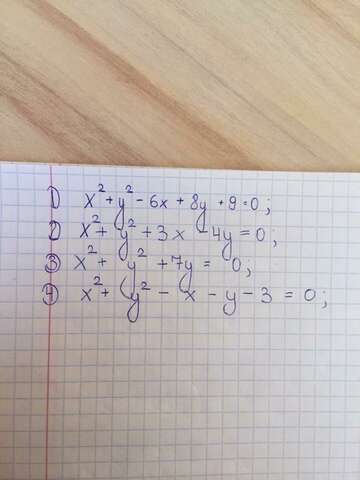 ① x²+y²-6x+8y+9=0;
② x²+y²+3x-4y=0;
③ x²+ y² +7y= 0;
④ x²+ y² - x - y - 3 = 0;